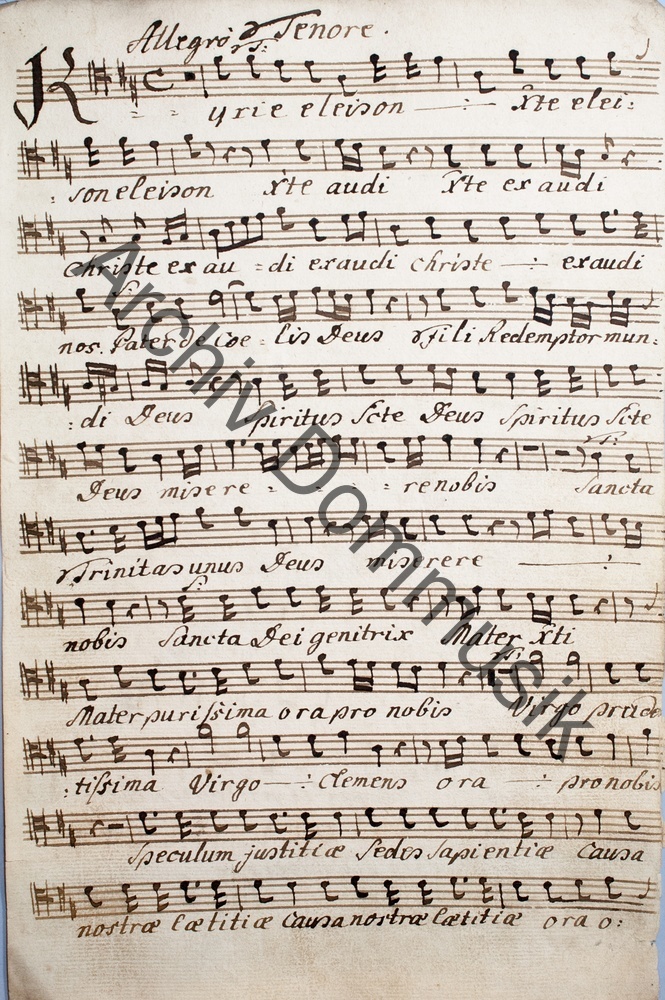 Allegro Tenore.
Kyrie eleison Xte elei:
: son eleison Xte audi Xte ex audi
Christe ex au = di exaudi Christe exaudi
nos. Pater de Coe = lis Deus fili Redemptor mun:
: di Deus Spiritus Scte Deus Spiritus Scte
Deus misere = = = re nobis Sancta
Trinitas unus Deus miserere
nobis Sancta Dei genitrix Mater Xti
Mater purissima ora pro nobis Virgo prude
: tissima Virgo Clemens ora pro nobis
Speculum justitiæ Sedes Sapientiæ Causa
nostræ lætitiæ Causa nostræ lætitiæ ora o:
Archiv Dommusik